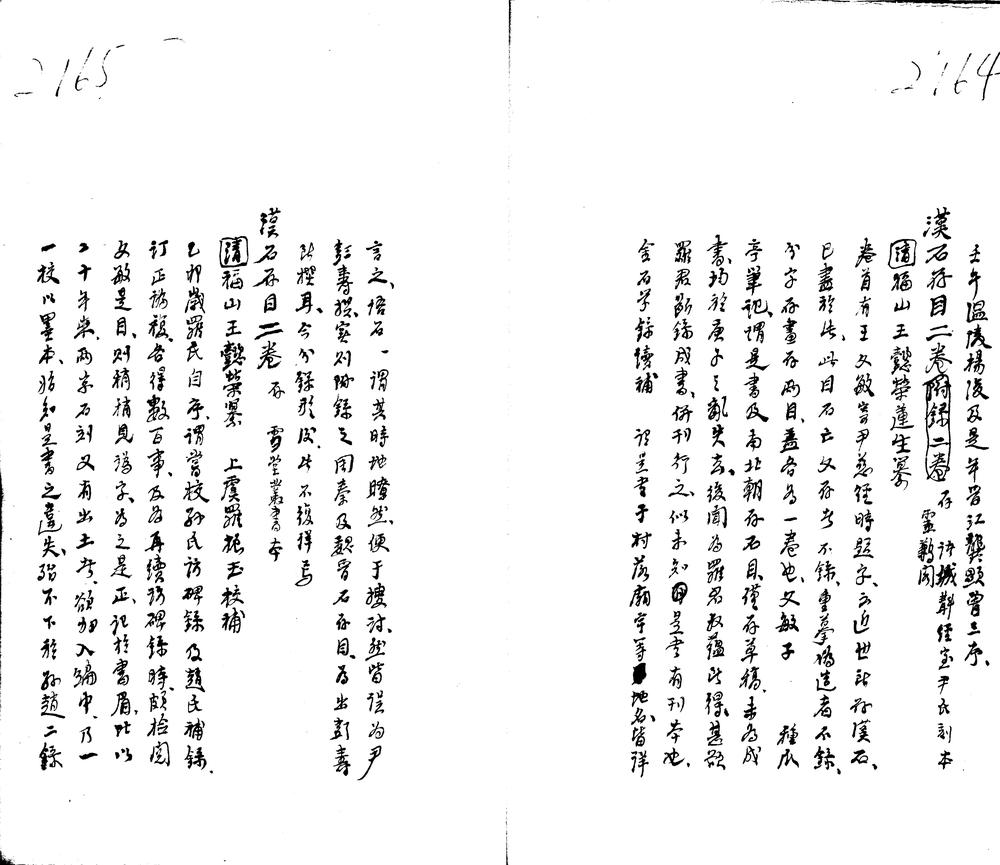 2164
壬午溫陵楊浚及是年晉江龔顯曾三序、
漢石存目二卷附錄二卷 存 諸城鄰經室尹氏刻本 靈鶼閣
清 福山王懿榮蓮生纂
卷首有王文敏寄尹慈經時題字、云近世所存漢石、
已盡於此、此目石亡文存者不錄、重摹偽造者不錄、
分字存畫存兩目、蓋各為一卷也、文敏子 種瓜
亭筆記、謂是書及南北朝存石目、僅存草稿、未為成
書、均於庚子之亂失去、後聞為羅君叔蘊所得、甚歡
羅君斷錄成書、併刊行之、似未知是書有刊本也、
金石學錄續補 謂是書于村落廟宇等地名皆詳
2165
言之、語石一謂其時地瞭然、便于搜訪、然皆誤為尹
彭壽撰、實則附錄之周秦及魏晉石存目、為出彭壽
所撰耳、今分錄於後、此不復詳焉
漢石存目二卷 存 雪堂叢書本
清 福山王懿榮纂 上虞羅振玉校補
乙卯歲羅氏自序、謂嘗校孫氏訪碑錄及趙氏補錄、
訂正譌複、各得數百事、及為再續訪碑錄時、頗檢閱
文敏是目、則稍稍見譌字、為之是正、記於書眉、此以
二十年來、兩京石刻又有出土者、欲加入編中、乃一
一校以墨本、始知是書之違失、殆不下於孫趙二錄